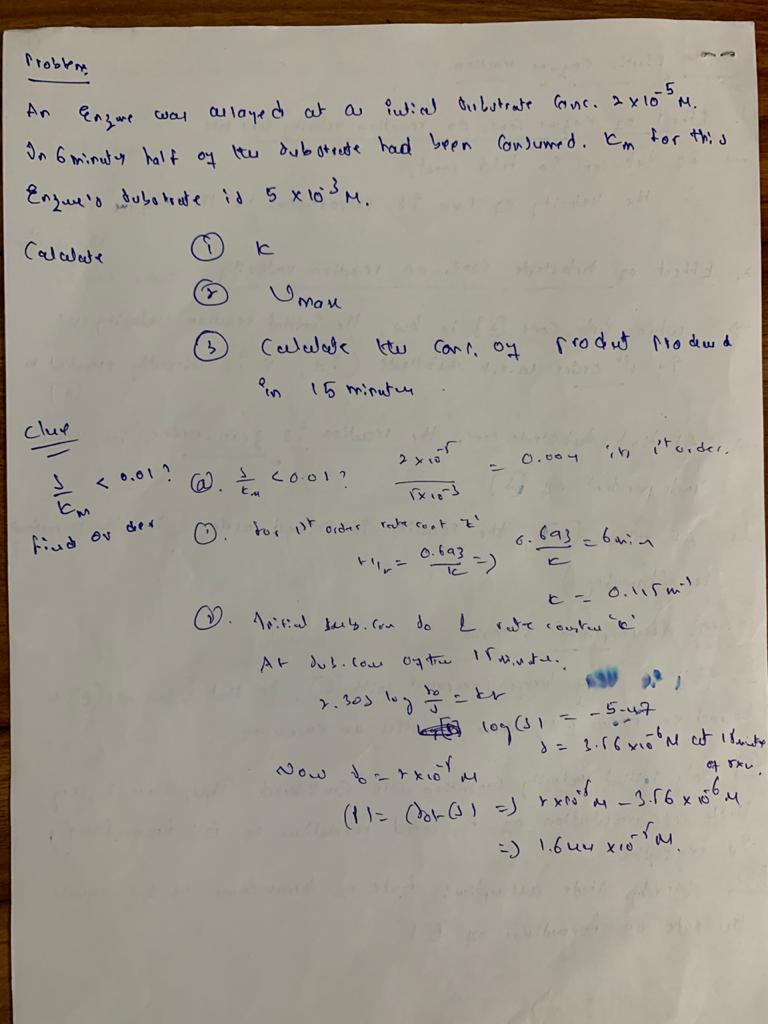 Problem
An Enzyme was assayed at a initial Substrate Conc. 2 x 10⁻⁵ M.
In 6 minutes half of the substrate had been consumed. Km for this
Enzyme's substrate is 5 x 10⁻³ M.
Calculate ① K
② Vmax
③ Calculate the conc. of product produced
in 15 minutes
Clue
S/Km < 0.01? ⓐ. S/Km < 0.01? 2 x 10⁻⁵ / 5x10⁻³ = 0.004 1st order.
find order
①. for 1st order rate cont 'k'
t1/2 = 0.693/k => 0.693/k = 6min
k = 0.115 m⁻¹
②. Initial subs. con So & rate constant 'k'
At sub. conc 15 minutes.
2.303 log So/S = kt
log(S) = -5.47
S = 3.56 x 10⁻⁶ M at 15 minutes of rxn.
Now So = 2 x 10⁻⁵ M
(P) = (So)-(S) => 2 x 10⁻⁵ M - 3.56 x 10⁻⁶ M
=> 1.644 x 10⁻⁵ M.